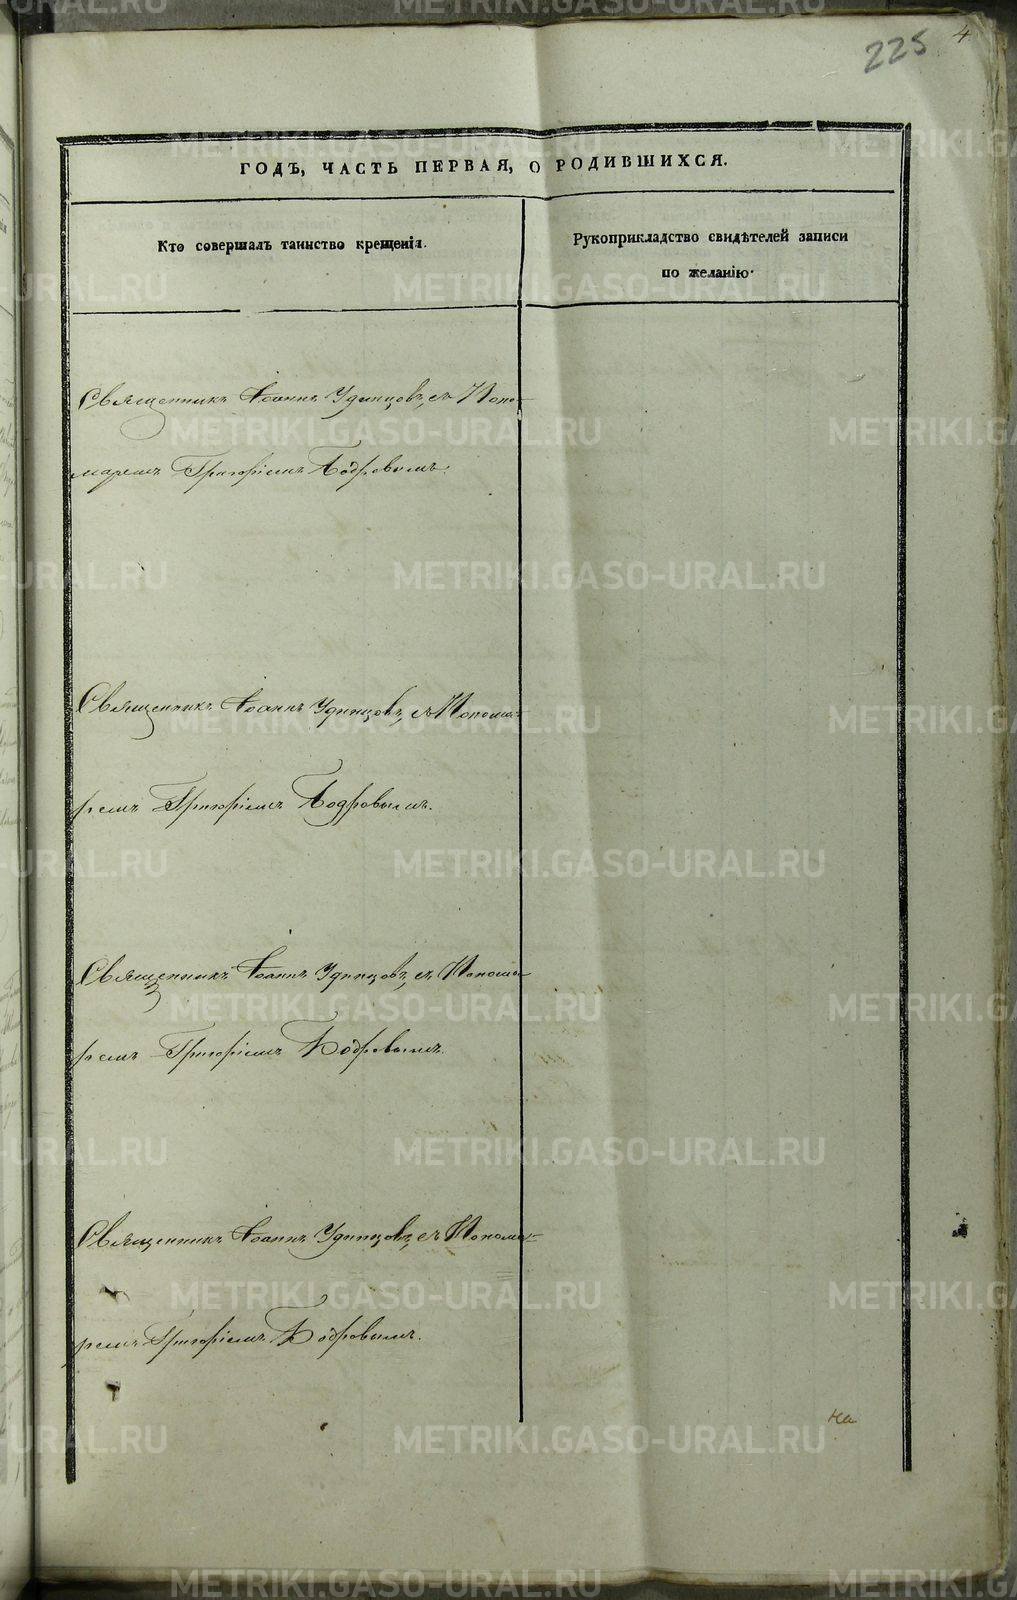 225
4
ГОДЪ, ЧАСТЬ ПЕРВАЯ, О РОДИВШИХСЯ.
Кто совершалъ таинство крещенія.
Рукоприкладство свидѣтелей записи
по желанію.
Священникъ Іоаннъ Удинцовъ, съ Поно-
маремъ Григоріемъ Бодровымъ.
Священникъ Іоаннъ Удинцовъ, съ Понома-
ремъ Григоріемъ Бодровымъ.
Священникъ Іоаннъ Удинцовъ, съ Понома-
ремъ Григоріемъ Бодровымъ.
Священникъ Іоаннъ Удинцовъ, съ Понома-
ремъ Григоріемъ Бодровымъ.
на
METRIKI.GASO-URAL.RU